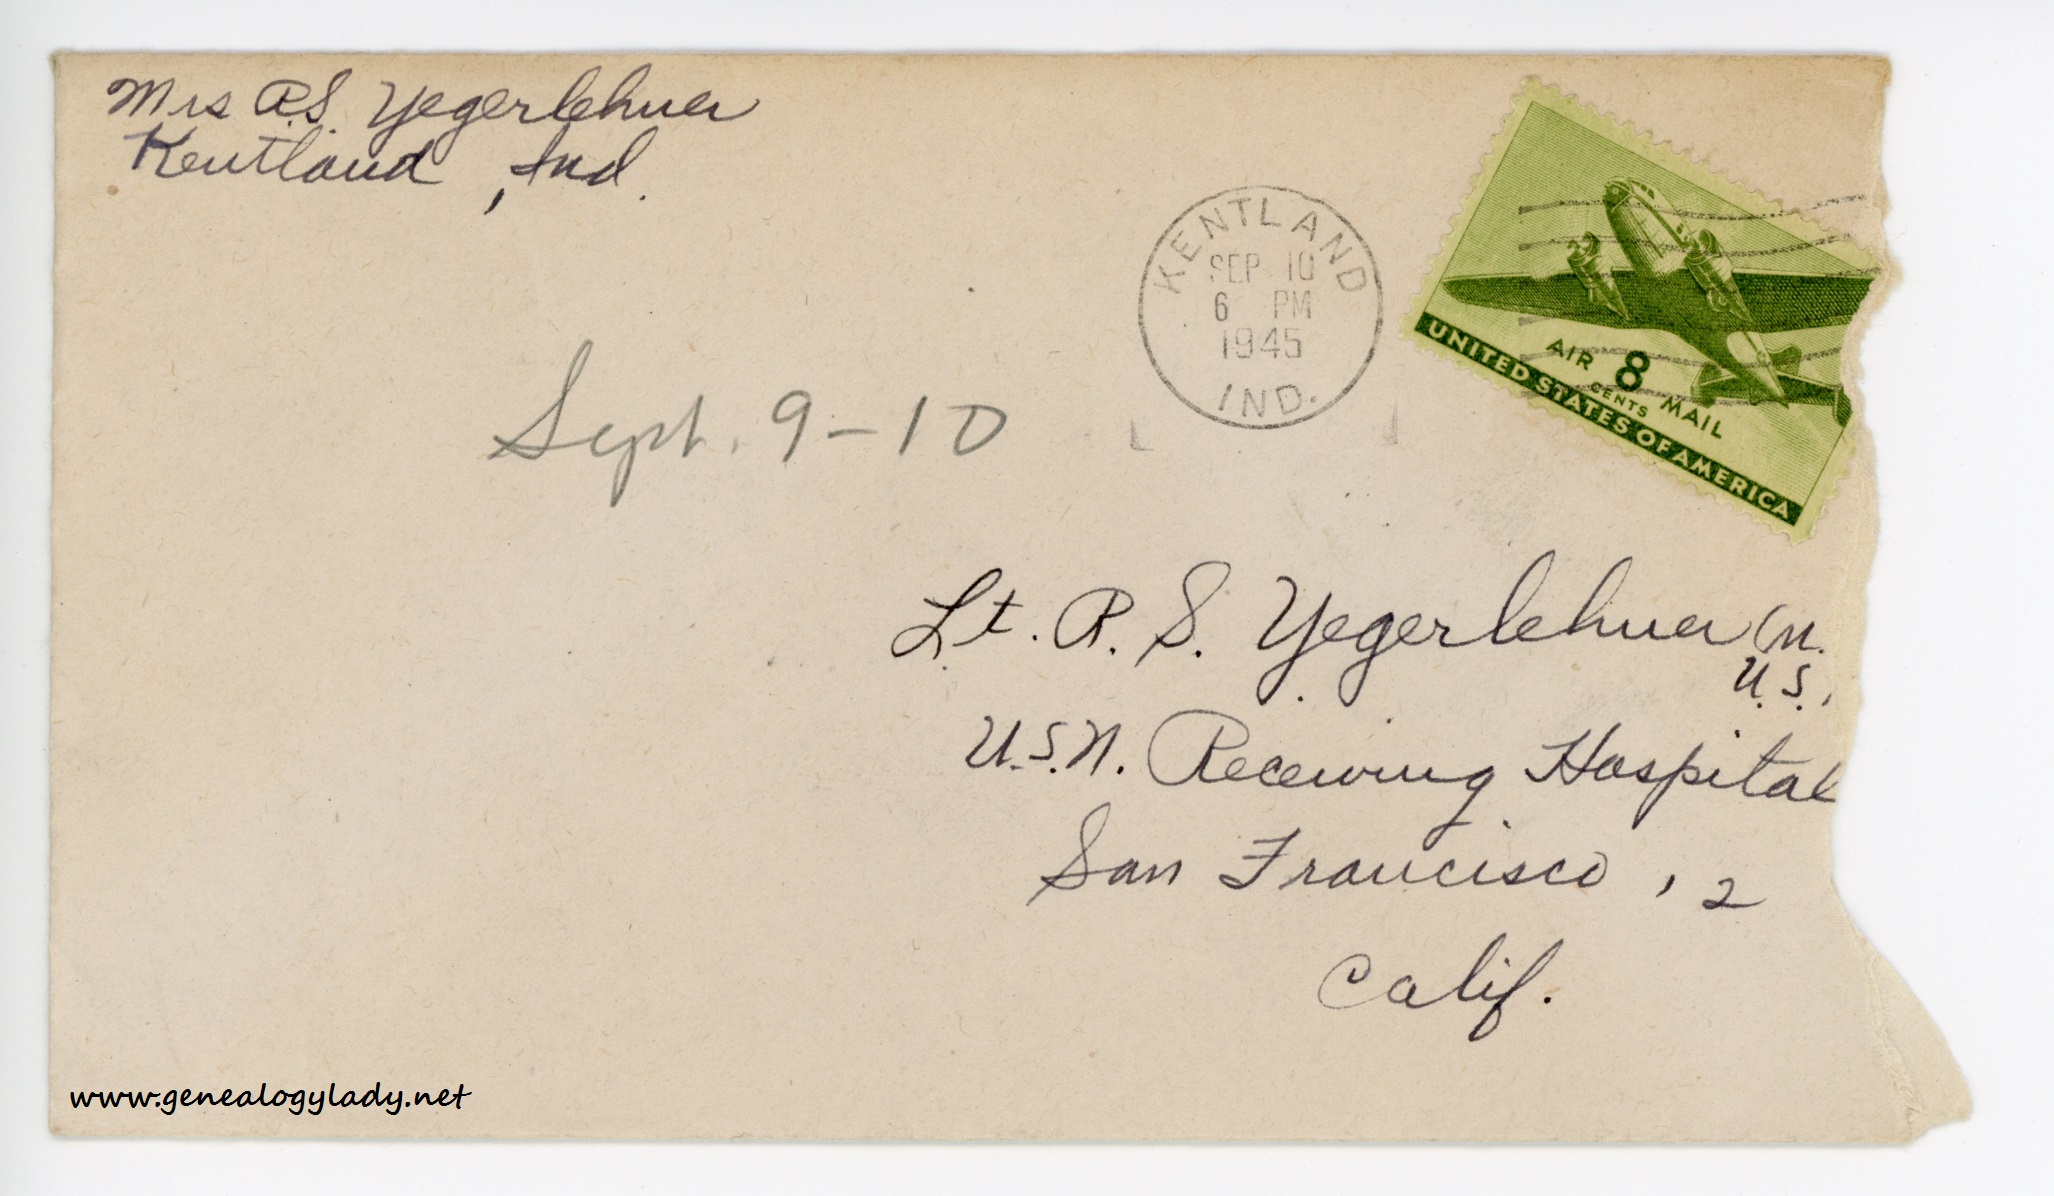 Mrs R.S. Yegerlehner
Kentland, Ind.
KENTLAND
SEP 10
6 PM
1945
IND.
AIR 8 MAIL
CENTS
UNITED STATES OF AMERICA
Sept. 9-10
Lt. R. S. Yegerlehner (M.
U.S.
U.S.N. Receiving Hospital
San Francisco, 2
Calif.
www.genealogylady.net